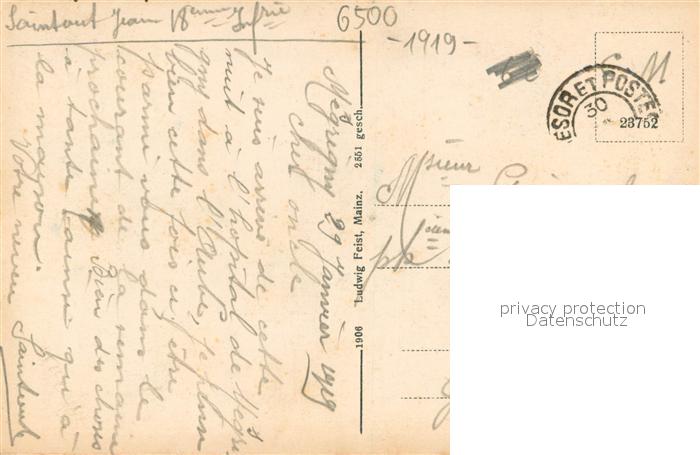 Saintout Jean 18eme Infrie
6500
-1919-
C M
TRESOR ET POSTES
30
23752
Mesgrigny 29 Janvier 1919
Cher oncle
Je suis arrivé de cette
nuit à l'hopital de
dans l'Aube, Je pense
bien cette fois ci être
parmi vous dans le
courant de la semaine
prochaine Bien des choses
à tante ainsi qu'à
la maison.
Votre neveu Saintout
1906 Ludwig Feist, Mainz. 2551 gesch.
Msieur
privacy protection
Datenschutz